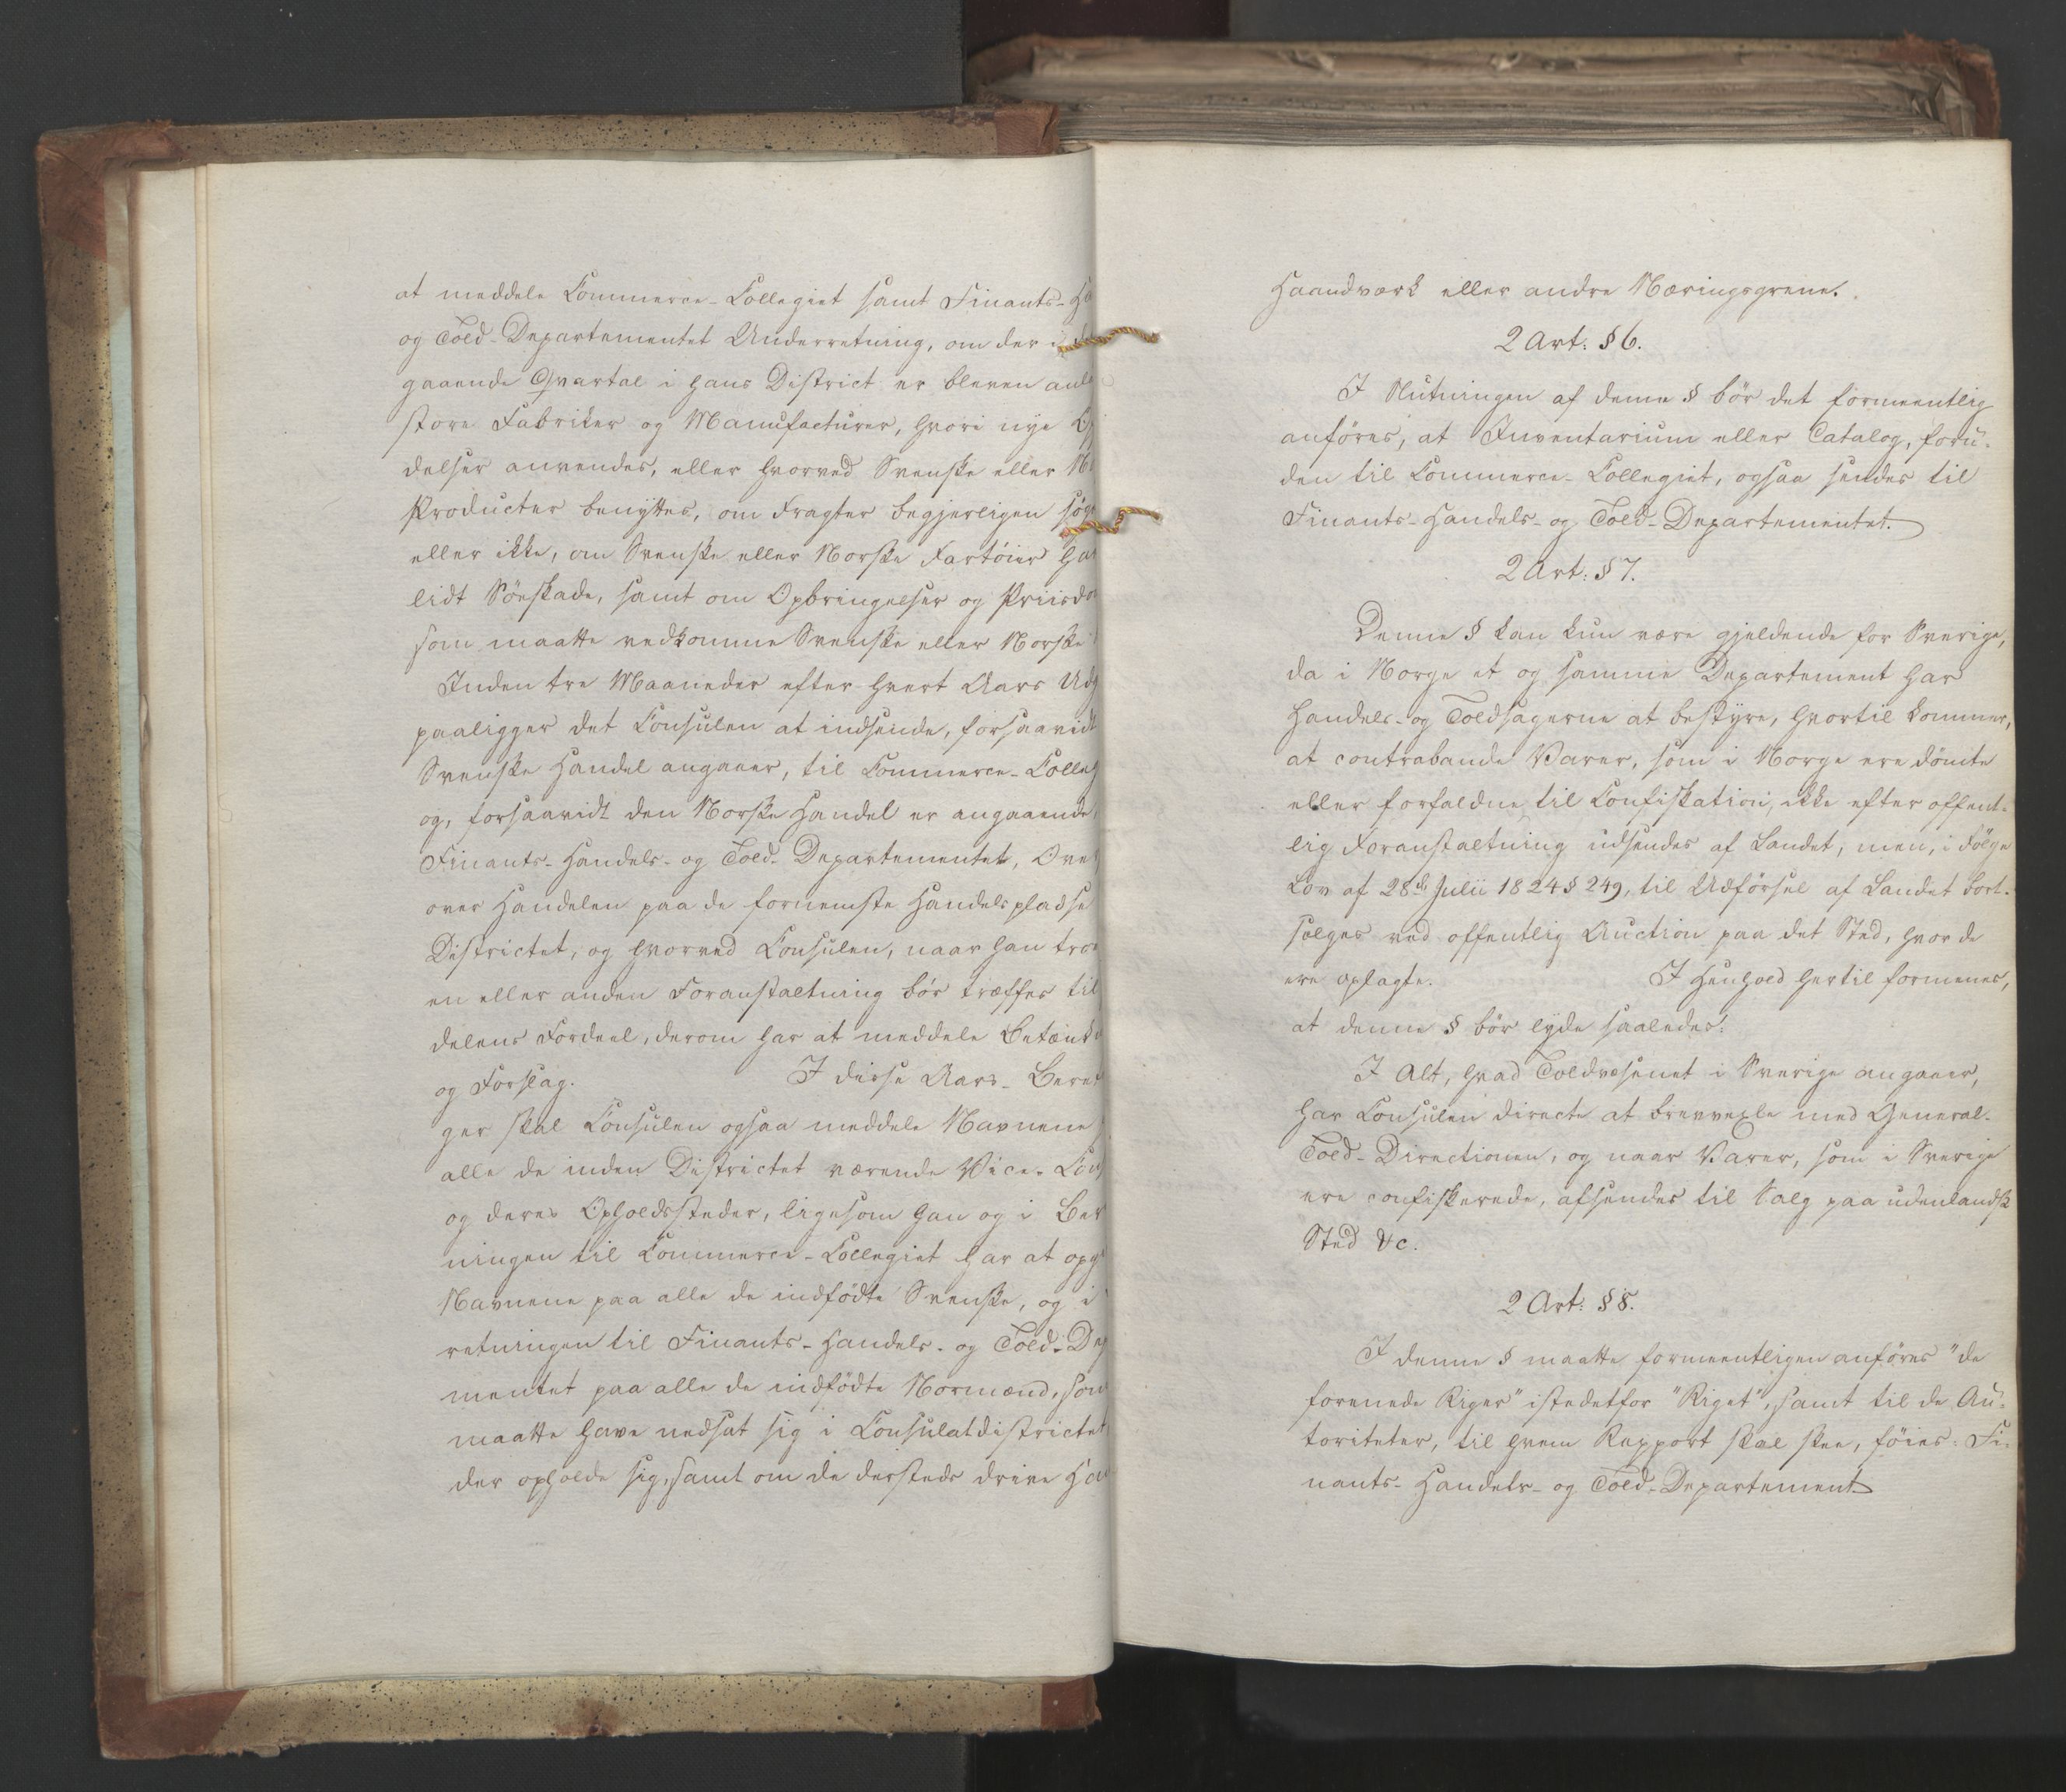 at meddele Commerce-Collegiet samt Finants-
og Told-Departementet Underretning, om der i
gaaende Qvartal i hans District er bleven
store Fabriker og Manufacturer, hvori nye
delser anvendes, eller hvorved Svenske eller
Producter benyttes, om Fragter begjerligen
eller ikke, om Svenske eller Norske Fartöier
lidt Söeskade, samt om Opbringelser og
som maatte vedkomme Svenske eller Norske
Inden tre Maaneder efter hvert Aars
paaligger det Consulen at indsende, forsaavidt
Svenske Handel angaaer, til Commerce-
og, forsaavidt den Norske Handel er angaaende,
Finants-Handels- og Told-Departementet,
over Handelen paa de fornemste
Districtet, og hvorved Consulen, naar han
en eller anden Foranstaltning bör træffes til
delens Fordeel, derom har at meddele
og Forslag. I disse Aars-
ger skal Consulen ogsaa meddele Navnene
alle de inden Districtet værende Vice-
og deres Opholdssteder, ligesom han og i
ningen til Commerce-Collegiet har at
Navnene paa alle de indfödte Svenske, og i
retningen til Finants-Handels- og Told-
mentet paa alle de indfödte Normænd,
maatte have nedsat sig i Consulatdistrictet
der opholde sig, samt om de dersteds drive
Haandværk eller andre Næringsgrene.
2 Art: § 6.
I Slutningen af denne § bör det formeentlig
anföres, at Inventarium eller Catalog, foru-
den til Commerce-Collegiet, ogsaa sendes til
Finants-Handels- og Told-Departementet.
2 Art: § 7.
Denne § kan kun være gjeldende for Sverige,
da i Norge et og samme Departement har
Handels- og Toldsagerne at bestyre, hvortil kommer,
at contrabande Varer, som i Norge ere dömte
eller forfaldne til Confiskation, ikke efter offent-
lig Foranstaltning udsendes af Landet, men, i Fölge
Lov af 28de Julii 1824 § 249, til Udförsel af Landet bort-
sælges ved offentlig Auction paa det Sted, hvor de
ere oplagte. I Henhold hertil formenes,
at denne § bör lyde saaledes:
I Alt, hvad Toldvæsenet i Sverige angaaer,
har Consulen directe at brevvexle med General-
Told-Directionen, og naar Varer, som i Sverige
ere confiskerede, afsendes til Salg paa udenlandsk
Sted &c.
2 Art: § 8.
I denne § maatte formeentligen anföres "de
forenede Riger" istedetfor "Riget", samt til de Au-
toriteter, til hvem Rapport skal skee, föies: Fi-
nants-Handels- og Told-Departement